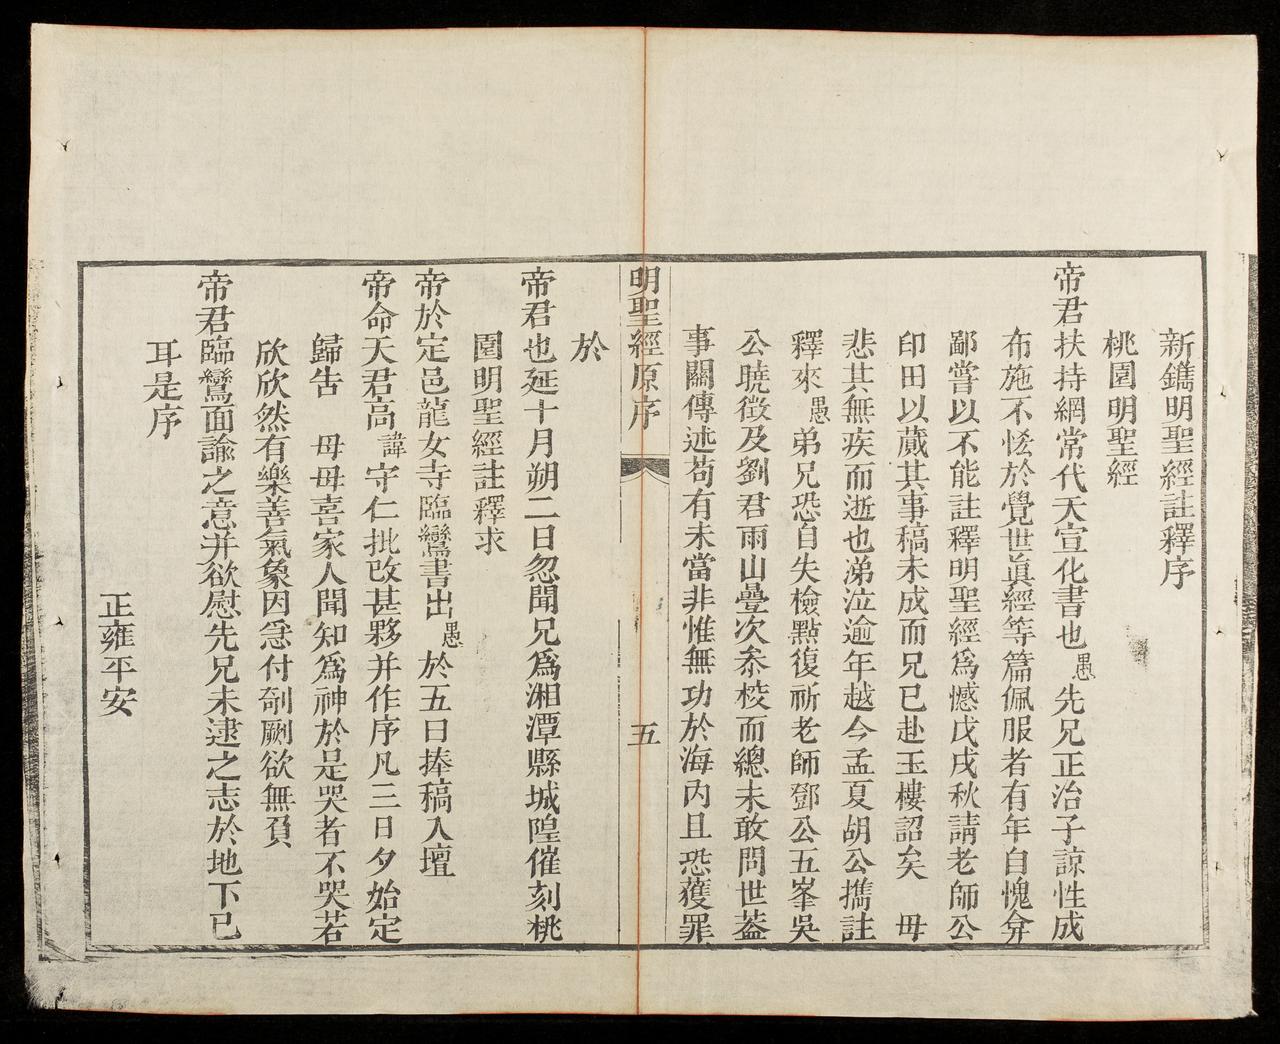 新鐫明聖經註釋序
桃園明聖經
帝君扶持綱常代天宣化書也愚先兄正治子諒性成
布施不恡於覺世眞經等篇佩服者有年自愧弇
鄙嘗以不能註釋明聖經爲憾戊戌秋請老師公
印田以蕆其事稿未成而兄已赴玉樓詔矣 母
悲其無疾而逝也涕泣逾年越今孟夏胡公攜註
釋來愚弟兄恐自失檢點復祈老師鄧公五峯吳
公曉徵及劉君雨山曡次叅校而總未敢問世葢
事關傳述苟有未當非惟無功於海內且恐獲罪
明聖經原序 五
於
帝君也延十月朔二日忽聞兄爲湘潭縣城隍催刻桃
園明聖經註釋求
帝於定邑龍女寺臨鸞書出愚於五日捧稿入壇
帝命天君高諱守仁批改甚夥并作序凡三日夕始定
歸告 母母喜家人聞知爲神於是哭者不哭若
欣欣然有樂善氣象因急付剞劂欲無負
帝君臨鸞面諭之意并欲慰先兄未逮之志於地下已
耳是序
正雍平安